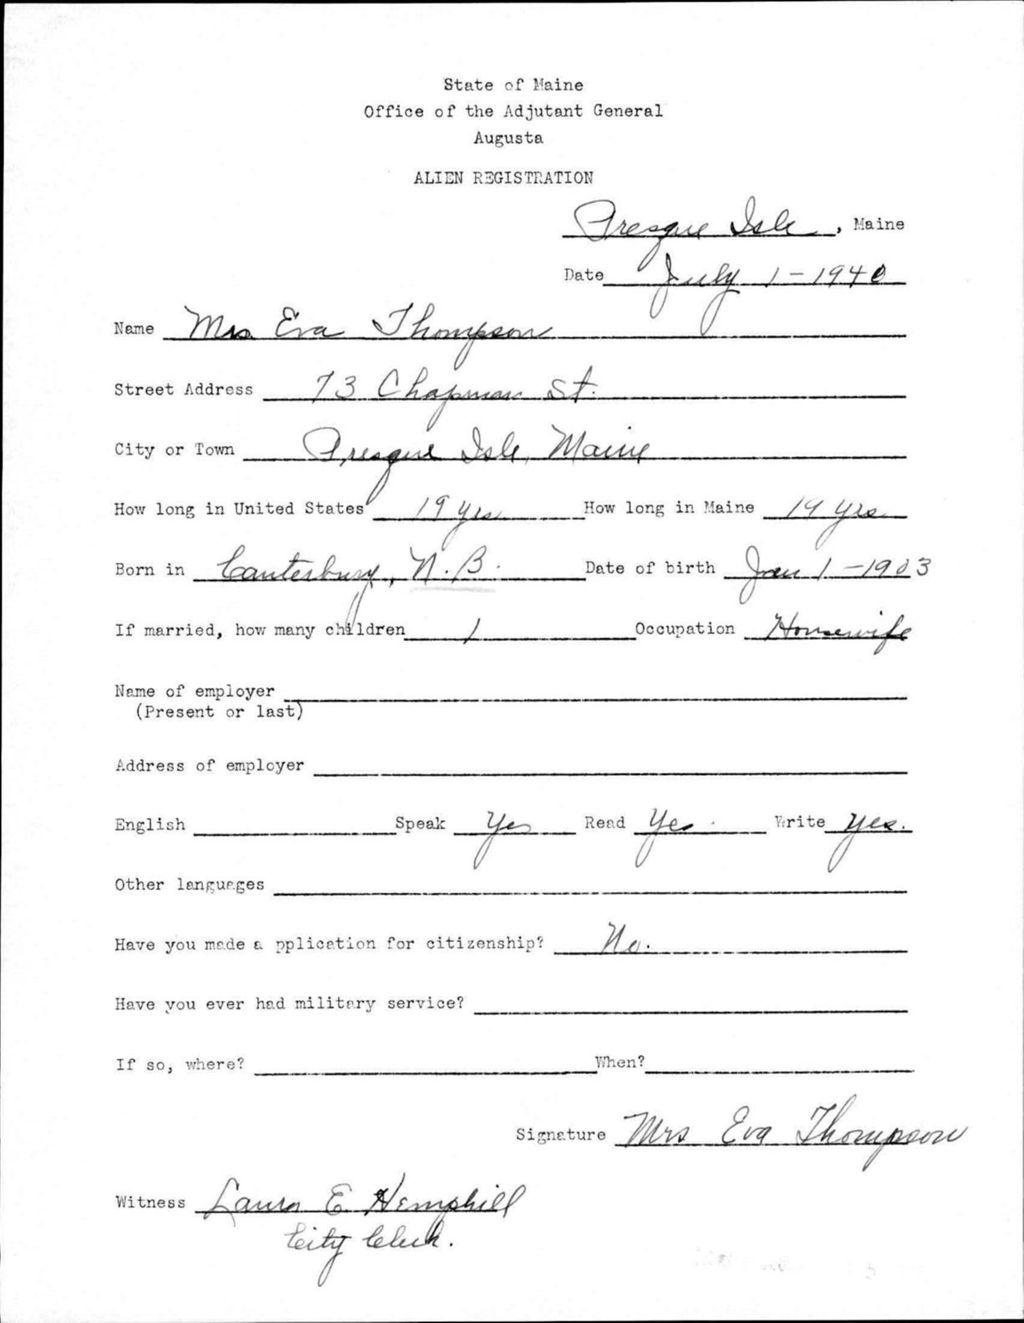 State of Maine
Office of the Adjutant General
Augusta
ALIEN REGISTRATION
Presque Isle, Maine
Date July 1-1940
Name Mrs Eva Thompson
Street Address 73 Chapman St.
City or Town Presque Isle, Maine
How long in United States 19 yrs. How long in Maine 19 yrs.
Born in Canterbury, N.B. Date of birth Jan 1-1903
If married, how many children 1 Occupation Housewife
Name of employer
(Present or last)
Address of employer
English Speak Yes Read Yes. Write Yes.
Other languages
Have you made a pplication for citizenship? No.
Have you ever had military service?
If so, where? When?
Signature Mrs Eva Thompson
Witness Laura E. Hemphill
City Clerk.